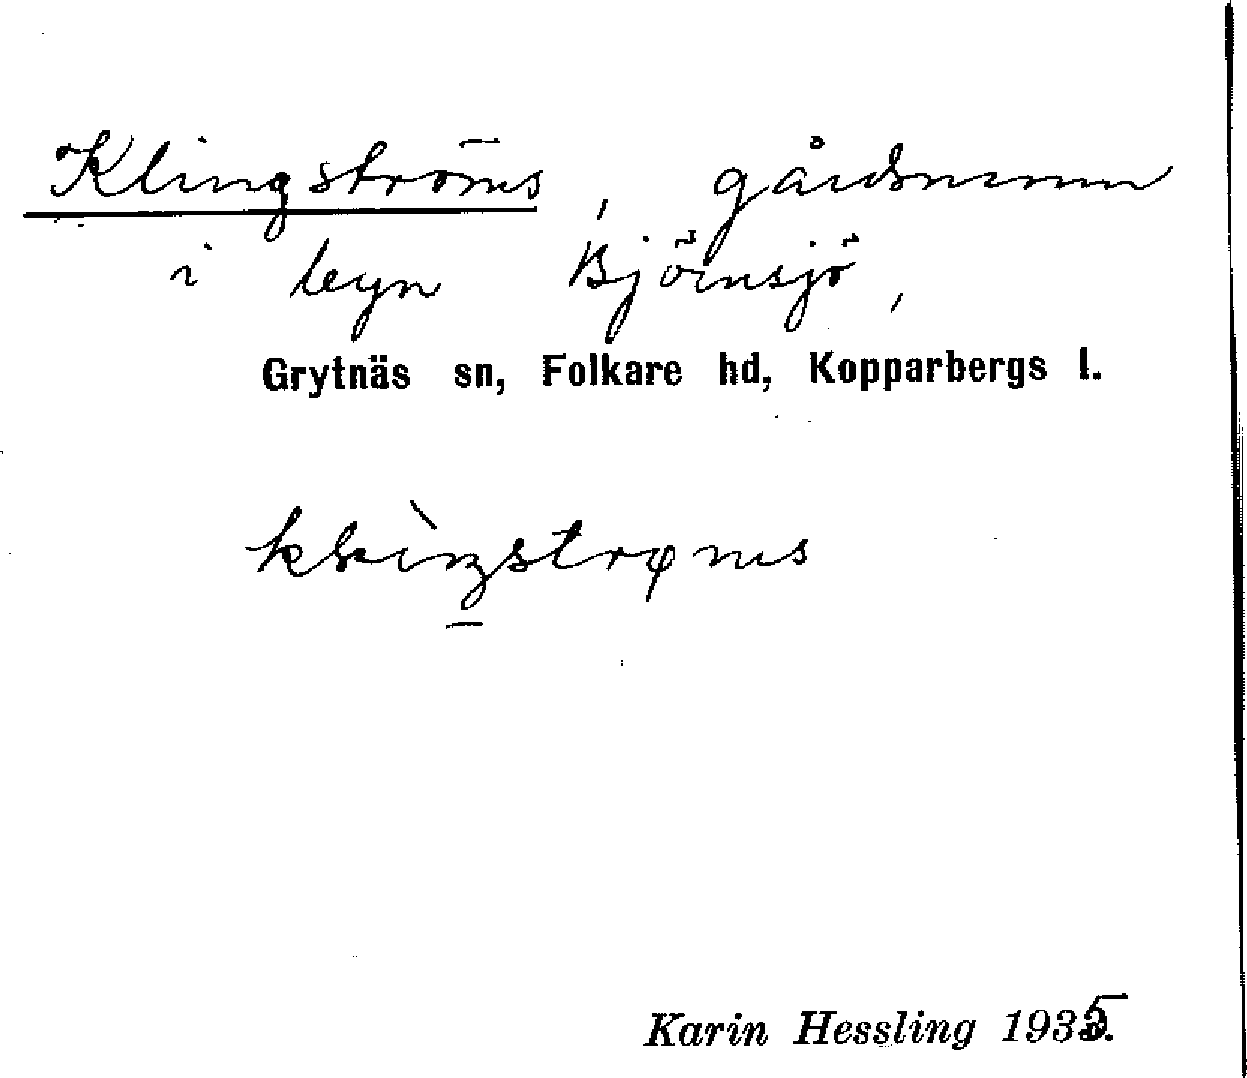 Klingströms, gårdsnamn
i byn Björnsjö,
Grytnäs sn, Folkare hd, Kopparbergs l.
Karin Hessling 1935.